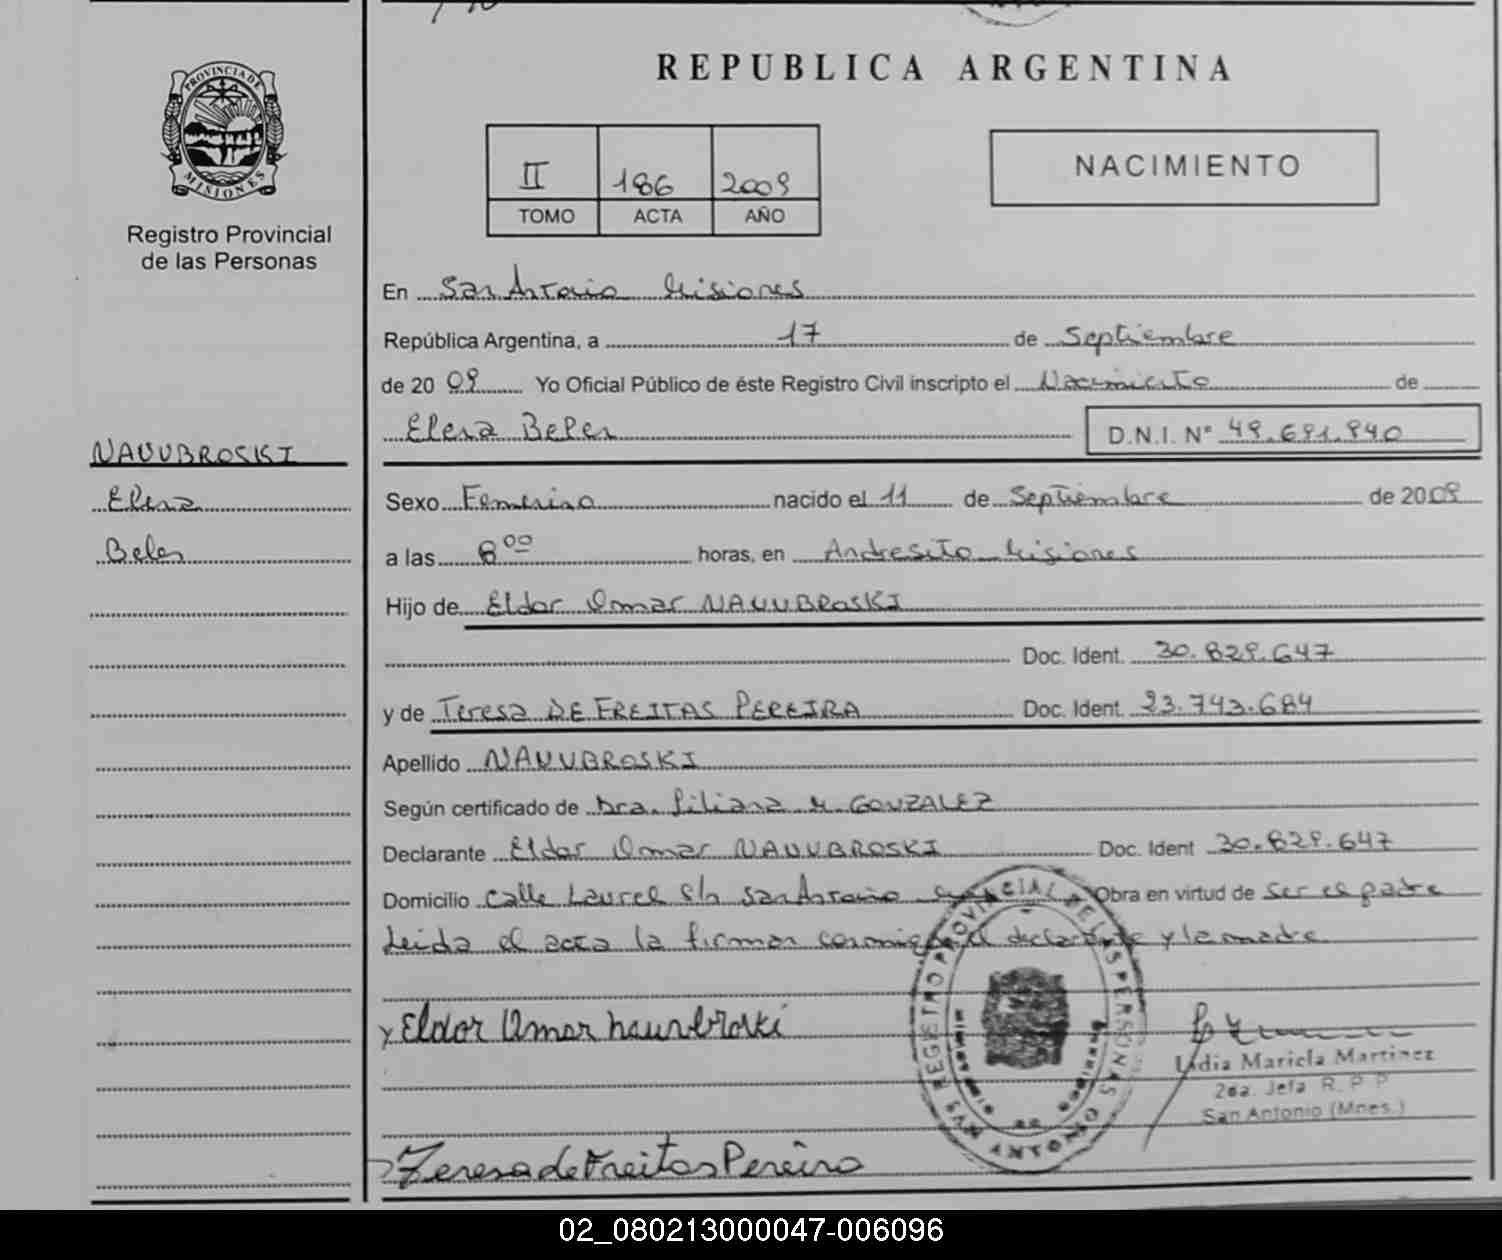 REPUBLICA ARGENTINA
PROVINCIA DE MISIONES
Registro Provincial
de las Personas
II 186 2009
TOMO ACTA AÑO
NACIMIENTO
En San Antonio Misiones
República Argentina, a 17 de Septiembre
de 20 09 Yo Oficial Público de éste Registro Civil inscripto el Nacimiento de
Elena Belen D.N.I. Nº 49.691.940
NAUUBROSKI
Elena
Belen
Sexo Femenino nacido el 11 de Septiembre de 2009
a las 8 00 horas, en Andresito Misiones
Hijo de Eldor Omar NAUUBROSKI
Doc. Ident. 30.829.647
y de Teresa DE FREITAS PEREIRA Doc. Ident. 23.743.684
Apellido NAUUBROSKI
Según certificado de Dra. Liliana M. GONZALEZ
Declarante Eldor Omar NAUUBROSKI Doc. Ident 30.829.647
Domicilio Calle Laurel S/n San Antonio Obra en virtud de ser el padre
Leida el acta la firman conmigo el declarante y la madre
Eldor Omar
Lidia Mariela Martinez
2da. Jefa R. P P
San Antonio (Mnes.)
REGISTRO PROVINCIAL DE LAS PERSONAS
SAN ANTONIO
Teresa de Freitas Pereira
02_080213000047-006096